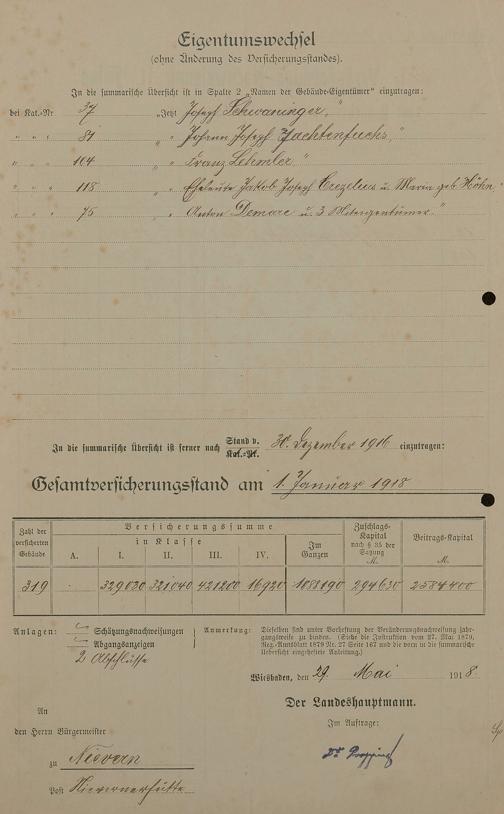 Eigentumswechsel
(ohne Änderung des Versicherungsstandes).
In die summarische Übersicht ist in Spalte 2 „Namen der Gebäude-Eigentümer" einzutragen:
bei Kat.-Nr 37 „Jetzt Joseph Schwaninger"
" " " 81 " " Johann Joseph Zachtenfuchs"
" " " 104 " " Franz Lehmler"
" " " 118 " " Eheleute Jakob Joseph Crezelius u. Maria geb. Höhn"
" " " 75 " " Anton Demare u. 3 Miteigentümer"
In die summarische Übersicht ist ferner nach Stand v. Kat.-Nr. 30. Dezember 1916 einzutragen:
Gesamtversicherungsstand am 1. Januar 1918
Zahl der versicherten Gebäude
Versicherungssumme
in Klasse
A. I. II. III. IV. Im Ganzen
Zuschlags-Kapital nach § 35 der Satzung M.
Beitrags-Kapital M.
319 329030 321040 421200 16920 1088190 294630 2584400
Anlagen: Schätzungsnachweisungen
Abgangsanzeigen
2 Abschlüsse
Anmerkung: Dieselben sind unter Vorheftung der Veränderungsnachweisung jahrgangsweise zu binden. (Siehe die Instruktion vom 27. Mai 1879, Reg.-Amtsblatt 1879 Nr. 27 Seite 167 und die vorn in die summarische Übersicht eingeheftete Anleitung.)
Wiesbaden, den 29. Mai 1918.
Der Landeshauptmann.
Im Auftrage:
An
den Herrn Bürgermeister
zu Nievern
Post Nievernerhütte